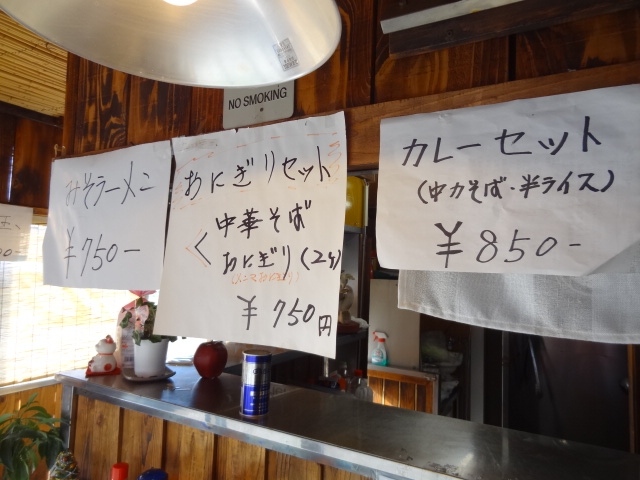 NO SMOKING
みそラーメン
¥750-
おにぎりセット
中華そば
おにぎり(2ヶ)
¥750円
カレーセット
(中力そば・半ライス)
¥850-